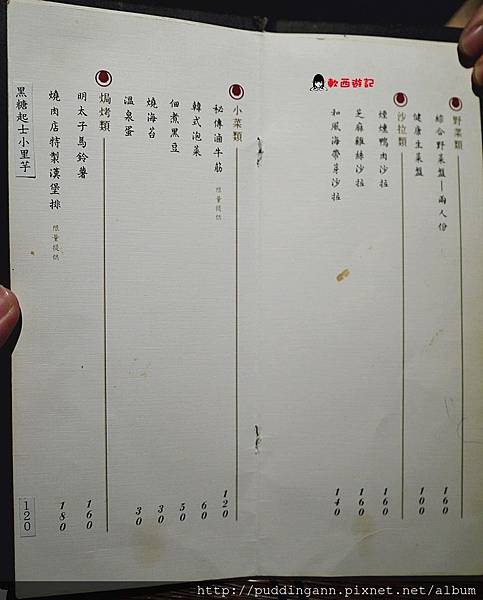 野菜類
綜合野菜盤—兩人份 160
健康生菜盤 100
沙拉類
煙燻鴨肉沙拉 160
芝麻雞絲沙拉 160
和風海帶芽沙拉 140
軟西遊記
小菜類
秘傳滷牛筋 限量提供 120
韓式泡菜 60
佃煮黑豆 50
燒海苔 30
溫泉蛋 30
焗烤類
明太子馬鈴薯 160
燒肉店特製漢堡排 限量提供 180
黑糖起士小里芋 120
http://puddingann.pixnet.net/album